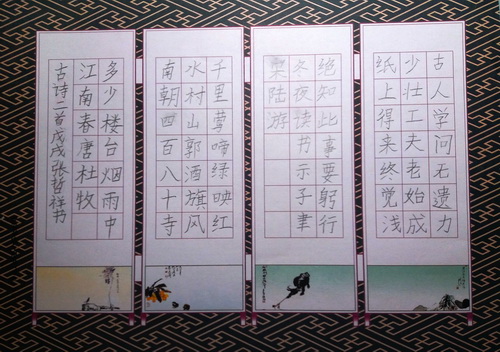 古人学问无遗力
少壮工夫老始成
纸上得来终觉浅
绝知此事要躬行
冬夜读书示子聿
陆游
千里莺啼绿映红
水村山郭酒旗风
南朝四百八十寺
多少楼台烟雨中
江南春唐杜牧
古诗二首戊戌张哲祥书